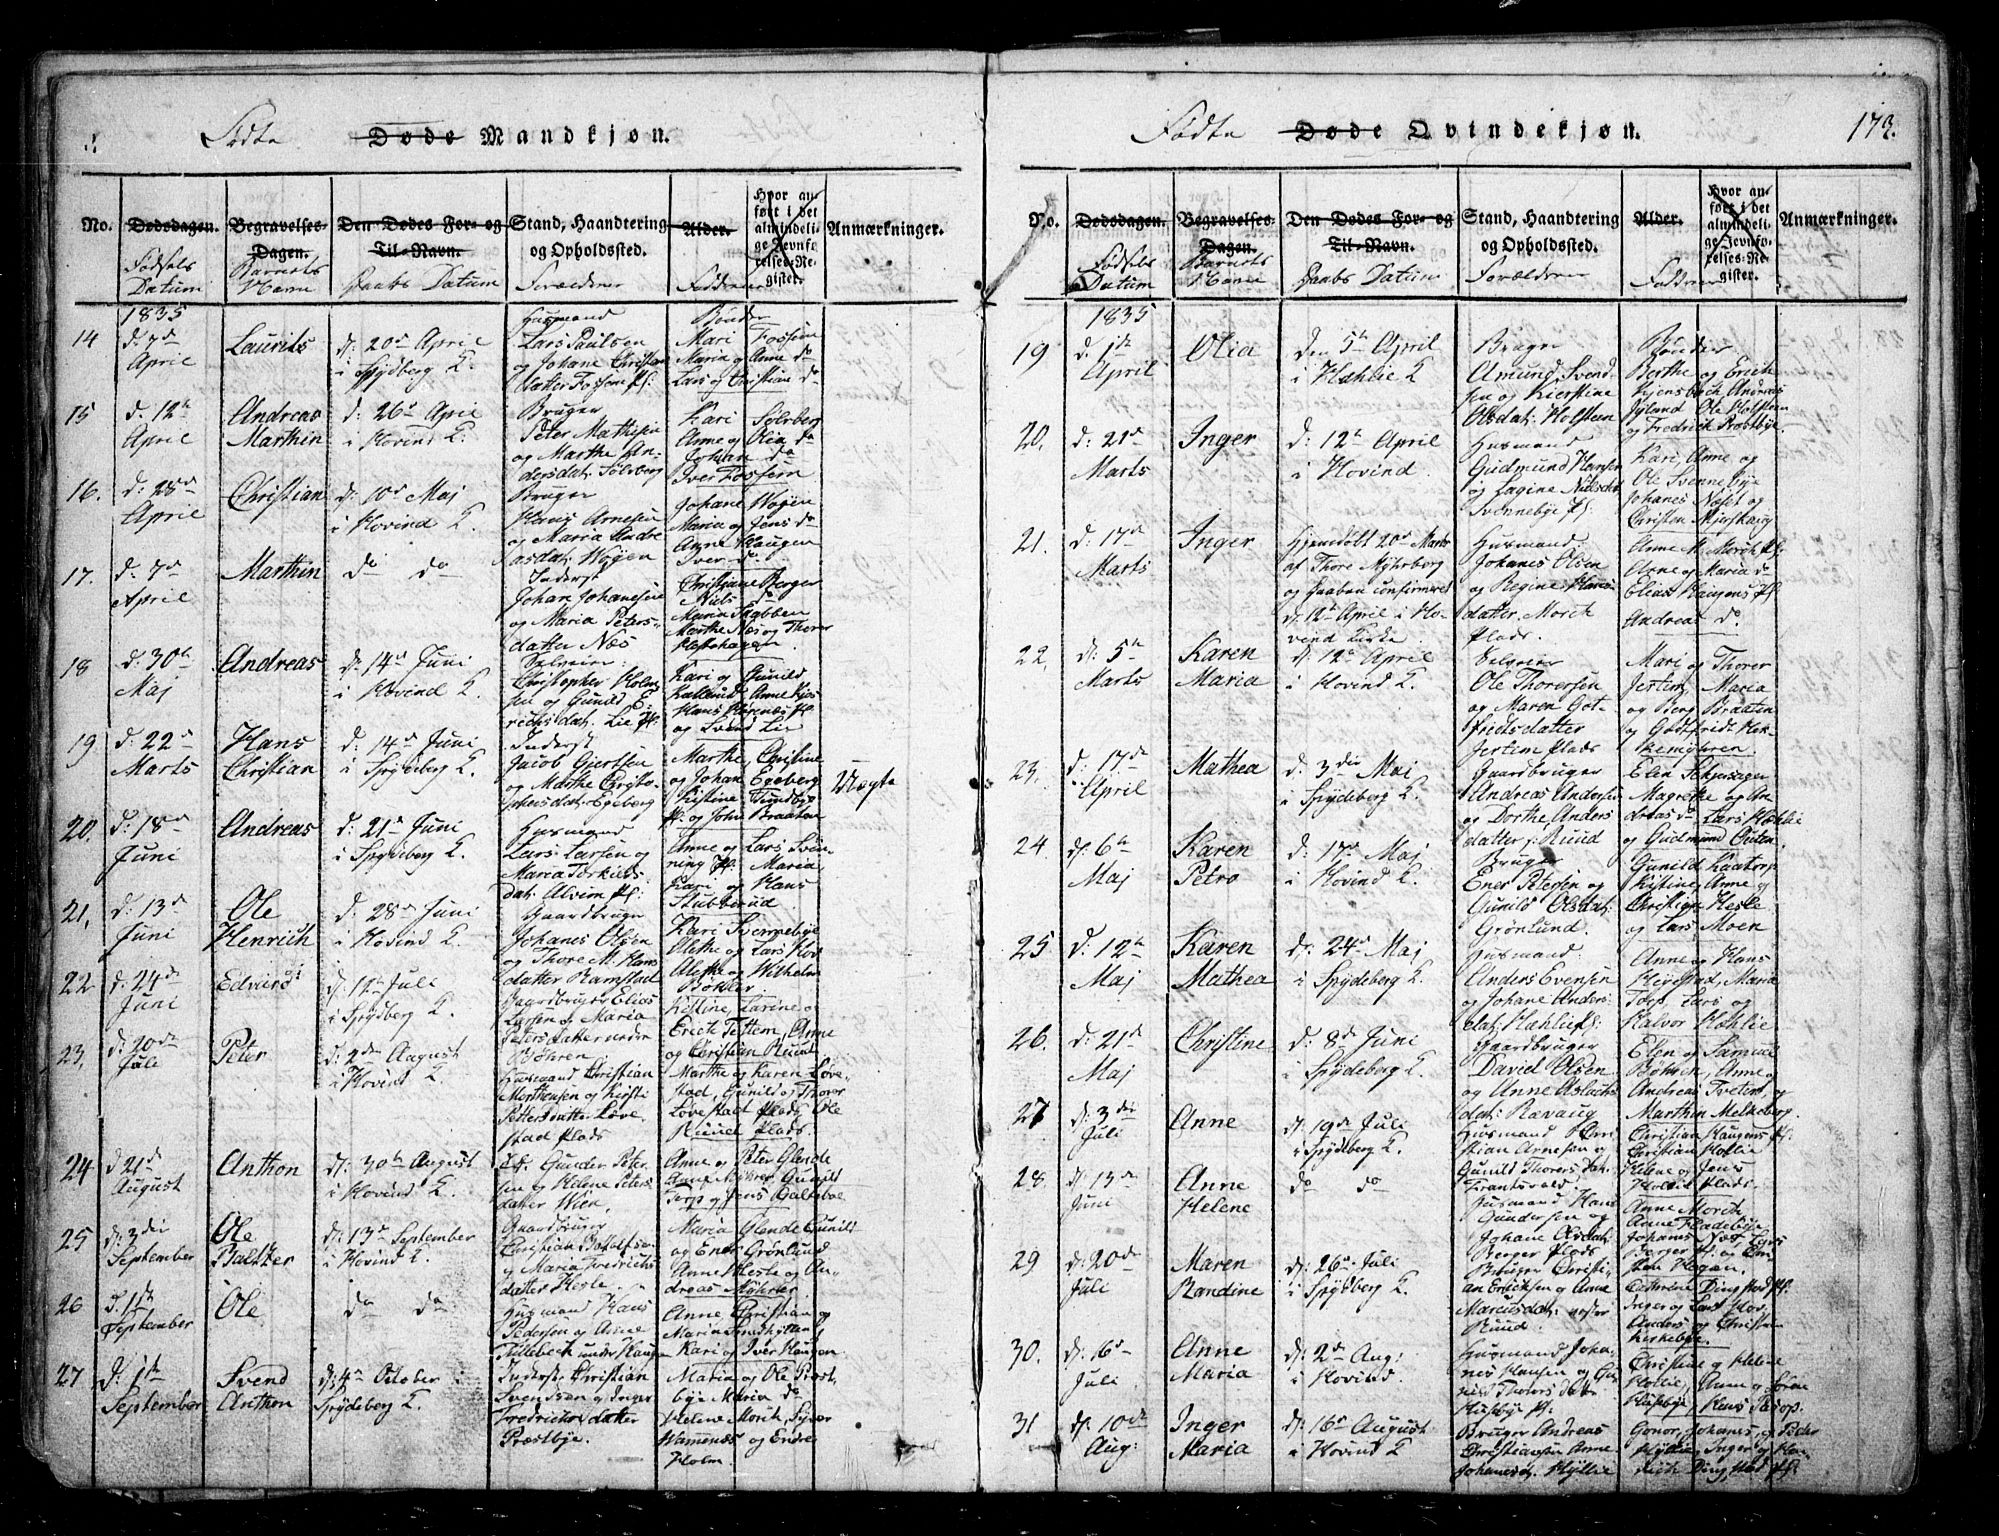 Födte Døde Mandkjøn.
No.
Dødsdagen.
Fødsels
Datum
Begravelses-
Dagen.
Barnets
Navn
Den Dødes For- og
Til-Navn.
Daabs Datum
Stand, Haandtering
og Opholdssted.
Forældrene
Alder.
Faddrene
Hvor an-
ført i det
almindeli-
ge Jevnfø-
relses-Re-
gister.
Anmærkninger.
1835
14
d: 7de
April
Laurits
d: 20de April
i Spydberg K.
Husmand
Lars Paulsen
og Johane Christian
datter Fossem Pl:
Bønder
Mari Fossem
Maria og Anne do
Lars og Christian do
15
d: 12te
April
Andreas
Marthin
d: 26de April
i Hovind K.
Bruger
Peter Mathisen
og Marthe An-
dersdat: Sölvberg
Kari Sölvberg
Anne og Olia do
Johan do
Iver Fossem
16.
d: 28de
April
Christian
d: 10de Maj
i Hovind K.
Bruger
og Maria Andre
asdat: Wøyen
Johane Wøyen
Maria og Jens do
Anne Haugen
Iver do
17.
d: 7de
April
Marthin
do do
Inderst
Johan Johanesen
og Maria Peters-
datter Næs
Christiane Berger
Niels do
Maria Stabben
Marthe Næs og Thorer
18
d: 30te
Maj
Andreas
d: 14de Juni
i Hovind K.
Selveier
Christopher Holm
sen og Gunild E-
richsdat: Lie Pl:
Kari og Gunild
og Svend Lie
19
d: 22de
Marts
Hans
Christian
d: 14de Juni
i Spydeberg K.
Inderst
Jacob Gjertsen
og Marthe Christo-
phersdat: Egeberg
Marthe, Christine
og Johan Egeberg
Kistine Tundbye
Pl: og John Braaten
Uægte
20.
d: 18de
Juni
Andreas
d: 21de Juni
i Spydeberg K.
Husmand
Lars Larsen og
Maria Torkilds-
dat: Alvim Pl:
Anne og Lars Svin-
ning Pl: Maria
Kari og Hans
Stubberud
21,
d: 13de
Juni
Ole
Henrich
d: 28de Juni
i Hovind K.
Gaardbruger
Johanes Olsen
og Thore M: Hans
datter Ramstad
Kari Svennebye
Alethe og Lars Hov
Alethe og Wilhelm
Böhler
22
d: 24de
Juni
Edvard
d: 12te Juli
i Spydberg K.
Gaardbruger Elias
Larsen og Maria
Petersdatter nedre
Böhren
Kistine, Larine og
Erich Tettem, Anne
og Christian Ruud
23,
d: 20de
Juli
Peter
d: 2den August
i Hovind K.
Husmand Christian
Morthensen og Kirsti
Pettersdatter Löve-
stad Plads
Marthe og Karen Löve-
stad, Gunild og Thorer
Lövestad Plads, Ole
Ruud Plads.
24
d 21de
August
Anthon
d: 30te August
i Hovind K.
Gunder Peter
sen og Helene Peters
datter Wien,
Anne og Peter Glende
Torp og Jens Galteboe
25
d: 3die
September
Ole
Baltzer
d: 13de September
i Hovind K.
Gaardbruger
Christian Botolfsen
og Maria Fredrichs
datter Heste
Maria Glende Gunild
og Ener Grönlund
Anne Heste og An-
dreas Myhrer
26
d: 1ste
September
Ole
do do
Husmand Hans
Pedersen og Anne
Tillebeck under Haugen
Anne Christian og
Maria
Kari og Iver Haugen
27
d: 1ste
September
Svend
Anthon
d: 4de October
Spydeberg K.
Inderst Christian
Svendsen og Inger
Fredrichsdatter
Præstbye.
Maria og Ole Præst-
bye Maria do
Helene Morch, Syver
Wammnæs og Endre
Holm
Födte Døde Qvindekjøn.
173.
No.
Dødsdagen.
Fødsels
Datum
Begravelses-
Dagen.
Barnets
Navn
Den Dødes For- og
Til-Navn.
Daabs Datum
Stand, Haandtering
og Opholdssted.
Forældrene
Alder.
Faddrene
Hvor an-
ført i det
almindeli-
ge Jevnfø-
relses-Re-
gister.
Anmærkninger.
1835
19
d. 1ste
April
Olia
den 5te April
i Hæhlie K
Bruger
Amund Svend-
sen og Kierstine
Olsdat: Holsteen
Bønder
Berthe og Erich
Kjensbach Andreas
Jyland Ole Holsteen
og Fredrich Præstbye
20.
d: 21de
Marts
Inger
d: 12te April
i Hovind
Husmand
Gudmund Hansen
og Lagine Nielsdat
Svennebye Pl:
Kari, Anne og
Ole Svennebye
Johanes Næset og
Christen Mjerskaug
21.
d: 17de
Marts
Inger
Hjemdöbt 20de Marts
af Thore Myhrberg
og Daaben confirmeret
d: 12te April i Ho-
vind Kirke
Husmand
Johanes Olsen
og Regine Hans-
datter Morch
Plads.
Anne M. Morch Pl:
Anne og Maria do
Elias Haugens Pl:
Andreas do
22,
d: 5te
Marts
Karen
Maria
d: 12te April
i Hovind K.
Selveier
Ole Thorersen
og Maren Got-
fredsdatter
Jertim Plads
Mari og Thorer
Jertim, Maria
og Berg Braaten
og Godtfridt Hek-
kemigteren.
23,
d: 17de
April
Mathea
d: 3die Maj
i Spydeberg K.
Gaardbruger
Andreas Andersen
og Dorthe Anders
datter s: Ruud
Elin
Magrethe og An
dreas do Lars Hæhlie
og Gudmund Outen
24
d: 6te
Maj
Karen
Petro
d: 17de Maj
i Hovind K.
Bruger
Ener Petersen og
Gunild Olsdat:
Grönlund.
Gunild Kaatorp
Kistine, Anne og
Christian Heste
og Lars Moen
25
d: 12te
Maj
Karen
Mathea
d: 24de Maj
i Spydeberg K.
Husmand
Anders Evensen
og Johane Anders-
dat: Hæhlie Pl:
Anne og Hans
Heyestad, Maria
Torp, Lars og
Halvor Hæhlie
26.
d: 21de
Maj
Christine
d: 8de Juni
i Spydeberg K.
Gaardbruger
David Olsen
og Anne Aslachs
dat: Ravaug
Elen og Samuel
Böhren, Anne og
Andreas Tveter
Marthin Melleberg.
27
d: 3die
Juli
Anne
d: 19de Juli
i Spydberg K.
Husmand Chri
stian Arnesen og
Gunild Thorers dat.
Frantsvold.
Christian Haugens Pl:
Christian Hollie
Helene og Jens
Hollie Plads.
28
d: 13de
Juni
Anne
Helene
do do
Husmand Hans
Gundersen og
Johane Olsdat:
Berger Plads
Anne Morch
Anne Hladebye
Johanes Næs Lars
Berger Pl: og Chri-
sten Hogan.
29
d: 20de
Juli
Maren
Randine
d: 26de Juli
i Spydberg K.
Bruger Christi-
an Ericksen og Anne
Marcusdat: vester
Ruud.
Cathrine Dingstad Pl:
Inger og Lars Hov,
Anders og Christen
Kirkebye.
30.
d: 6te
Juli
Anne
Maria
d: 2de Aug:
i Hovind.
Husmand Joha-
nes Hansen og Gu-
nild Thorers datter
Husebye Pl:
Christine og Helene
Hollie, Anne og Sören
Husebye, Hans Sarop.
31
d: 10de
Aug:
Inger
Maria
d: 16de August
i Hovind K
Bruger Andreas
Christiansen Anne
Johanesdt: Hyllie
Gonor, Johanes, og Peder
Hyllie, Inger og Hen
rich Dingstad Pl: